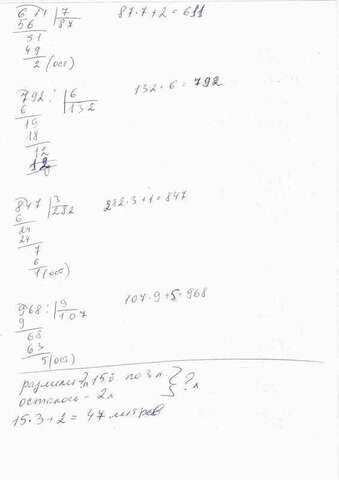 611 | 7    87·7+2=611
56 | 87
51
49
2 (ост)
792 : | 6    132·6=792
6 | 132
19
18
12
12
847 | 3    282·3+1=847
6 | 282
24
24
7
6
1 (ост)
968 : | 9    107·9+5=968
9 | 107
68
63
5 (ост)
15б по 3л } ?л
осталось - 2л
15·3+2=47 литров